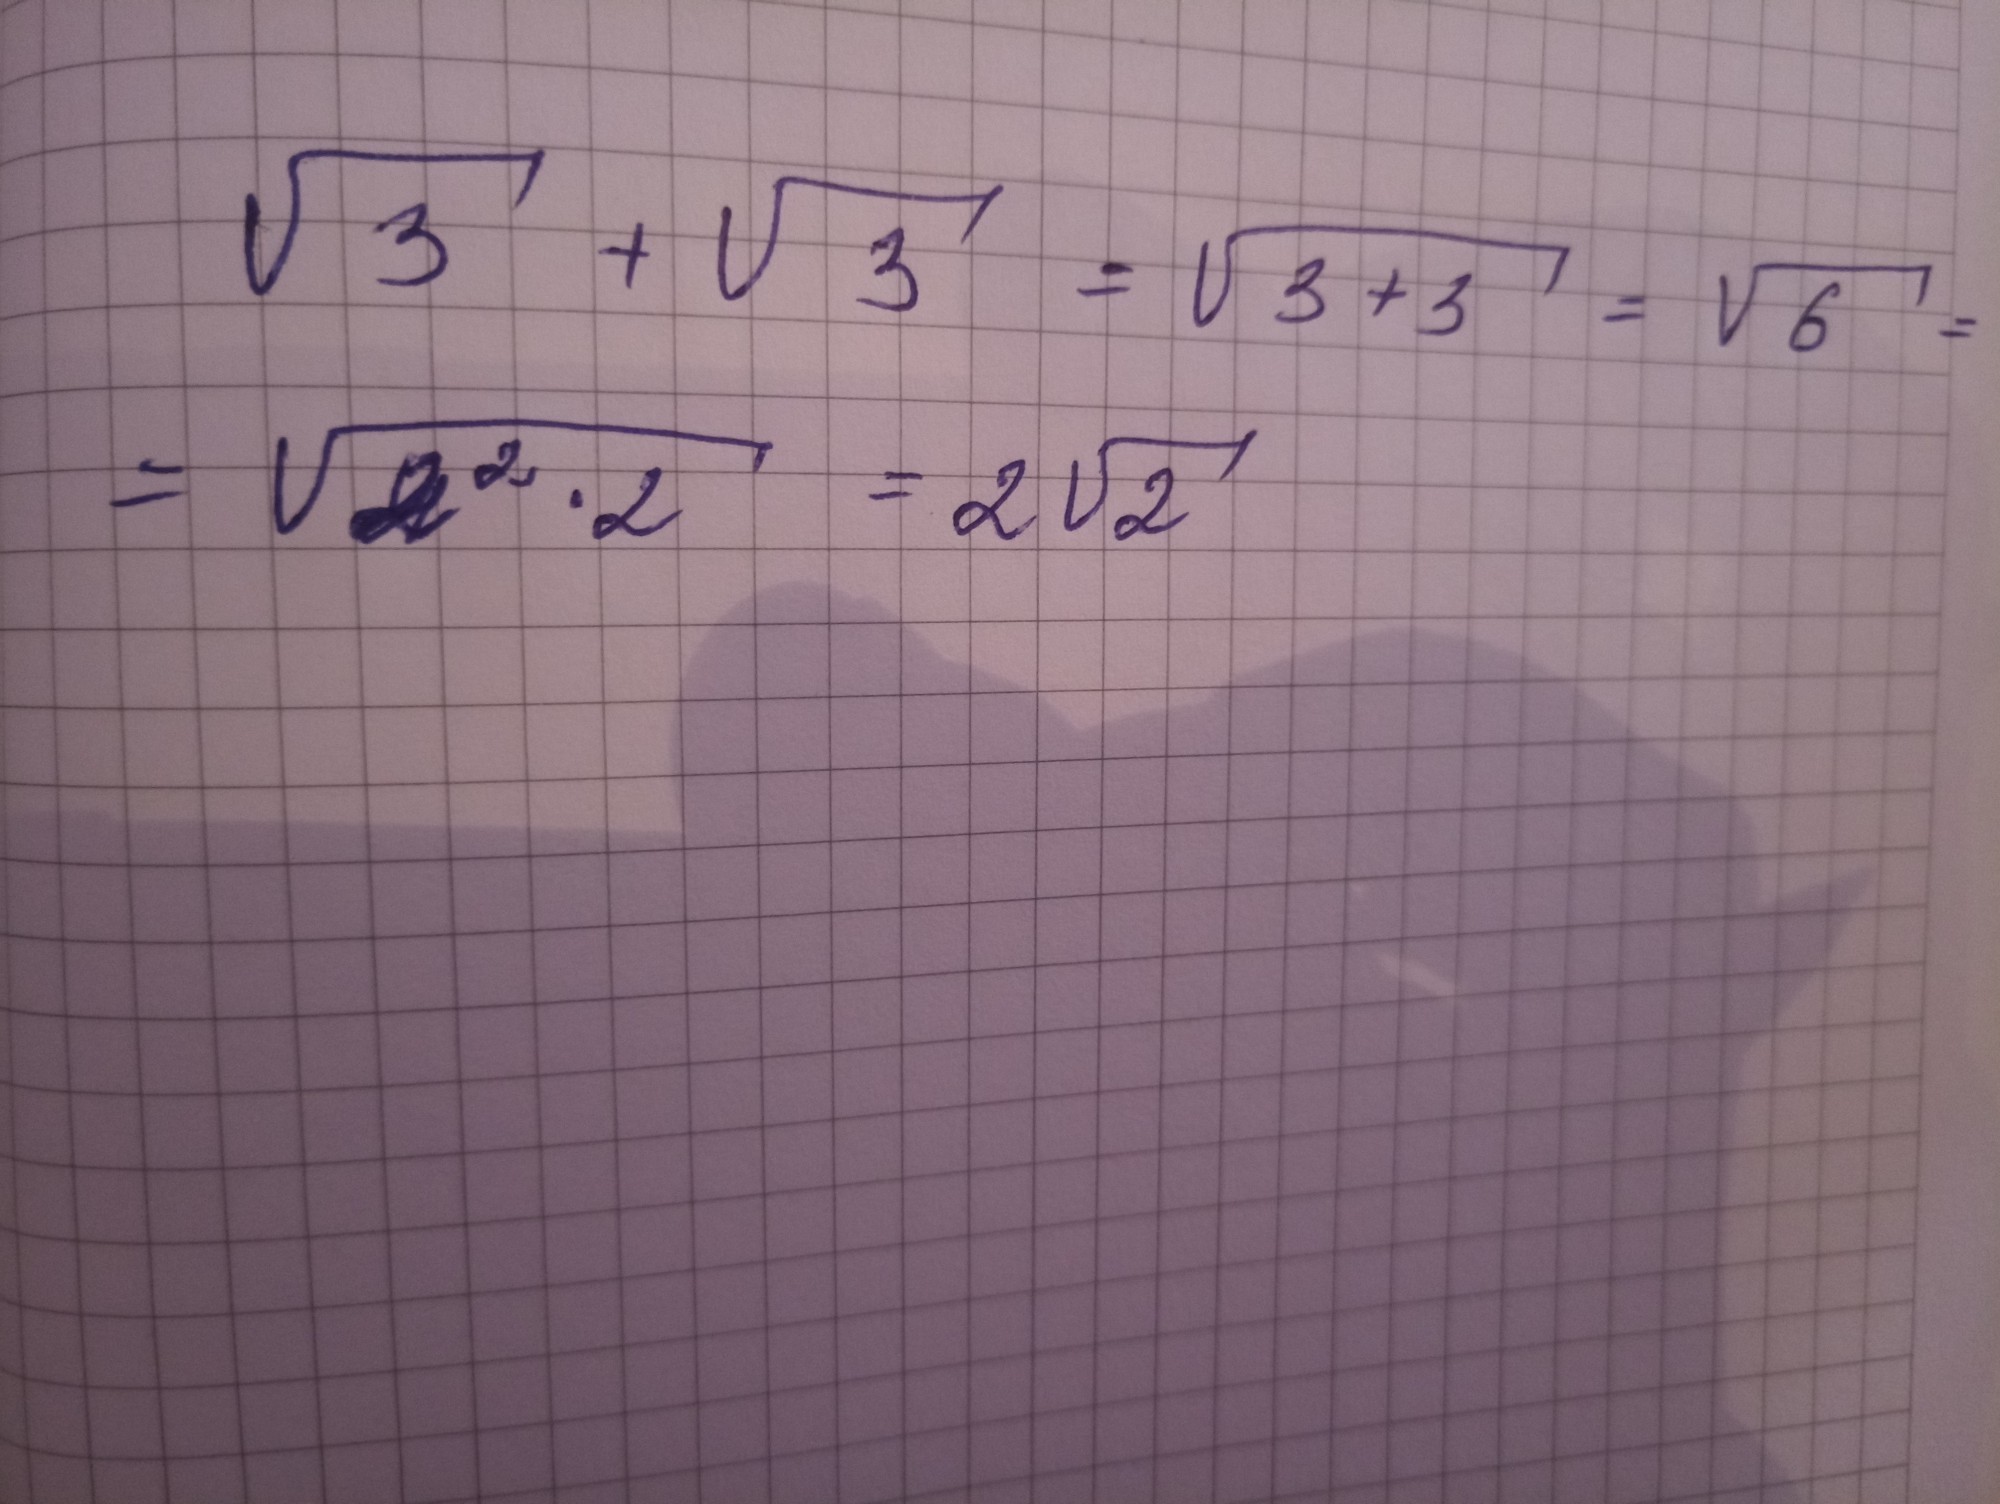 √3 + √3 = √3+3 = √6 =
= √2² · 2 = 2√2